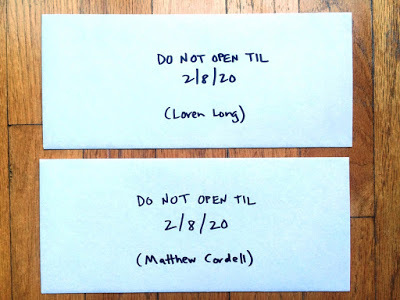 DO NOT OPEN TIL
2/8/20
(Loren Long)
DO NOT OPEN TIL
2/8/20
(Matthew Cordell)